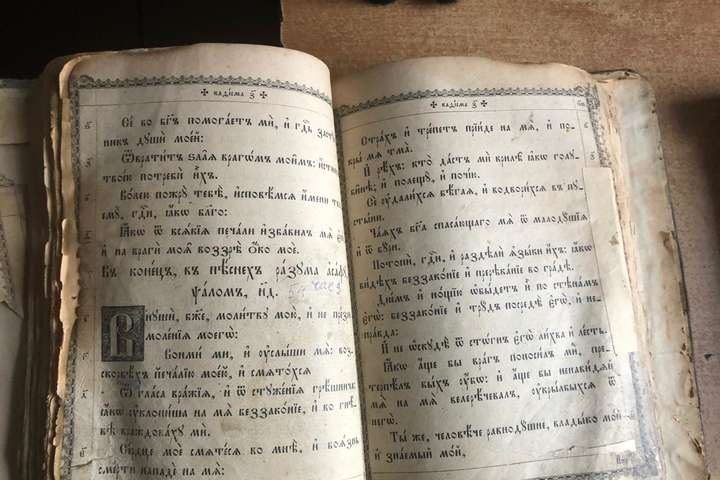 ✠ каѳі́сма з҃ ✠
Се́ бо бг҃ъ помога́етъ мѝ, и҆ гдⷭ҇ь засту́п
никъ дꙋшѝ мое́й:
Ѿврати́тъ ѕла̑ѧ врагѡ́мъ мои̑мъ: и҆́стин
твое́ю потребѝ и҆̀хъ.
Во́лею пожрꙋ̀ тебѣ̀, и҆сповѣ́мсѧ и҆́мени тво
емꙋ̀, гдⷭ҇и, ꙗ҆́кѡ бла́го:
Ꙗ҆́кѡ ѿ всѧ́кїѧ печа́ли и҆зба́вилъ мѧ̀ є҆сѝ
и҆ на врагѝ моѧ̑ воззрѣ̀ ѻ҆́ко моѐ.
Въ коне́цъ, въ пѣ́снехъ ра́зꙋма а҆са́фꙋ
ѱало́мъ, н҃д.
Внꙋшѝ, бж҃е, моли́твꙋ мою̀, и҆ не пре́зри
моле́нїѧ моегѡ̀:
Вонмѝ мѝ, и҆ ᲂу҆слы́ши мѧ̀: воз
скорбѣ́хъ печа́лїю мое́ю, и҆ смѧто́хсѧ
Ѿ гла́са вра́жїѧ, и҆ ѿ стꙋже́нїѧ грѣ́шнича:
ꙗ҆́кѡ ᲂу҆клони́ша на мѧ̀ беззако́нїе, и҆ во гнѣ́
вѣ враждова́хꙋ мѝ.
Се́рдце моѐ смѧте́сѧ во мнѣ̀, и҆ боѧ́знь
сме́рти нападѐ на мѧ̀:
✠ каѳі́сма з҃ ✠
Стра́хъ и҆ тре́петъ прїи́де на мѧ̀, и҆ по
кры́ мѧ тма̀.
И҆ рѣ́хъ: кто̀ да́стъ мѝ крилѣ̀ ꙗ҆́кѡ голꙋ
би̑нѣ; и҆ полещꙋ̀, и҆ почі́ю.
Сѐ ᲂу҆дали́хсѧ бѣ́гаѧ, и҆ водвори́хсѧ въ пꙋ
сты́ни.
Ча́ѧхъ бг҃а спаса́ющаго мѧ̀ ѿ малодꙋ́шїѧ
и҆ ѿ бꙋ́ри.
Потопѝ, гдⷭ҇и, и҆ раздѣлѝ ѧ҆зы́ки и҆́хъ: ꙗ҆́кѡ
ви́дѣхъ беззако́нїе и҆ прерѣка́нїе во гра́дѣ.
Дне́мъ и҆ но́щїю ѡ҆бы́детъ и҆̀ по стѣна́мъ
є҆гѡ̀: беззако́нїе и҆ трꙋ́дъ посредѣ̀ є҆гѡ̀, и҆ не
пра́вда:
И҆ не ѡ҆скꙋдѣ̀ ѿ сто́гнъ є҆гѡ̀ ли́хва и҆ ле́сть.
Ꙗ҆́кѡ а҆́ще бы вра́гъ поноси́лъ мѝ, пре
терпѣ́лъ бы́хъ ᲂу҆́бѡ: и҆ а҆́ще бы ненави́дѧй
мѧ̀ на мѧ̀ велерѣ́чевалъ, ᲂу҆кры́лбыхсѧ ѿ
негѡ̀:
Ты́ же, человѣ́че равнодꙋ́шне, влады́ко мо́й
и҆ зна́емый мо́й,